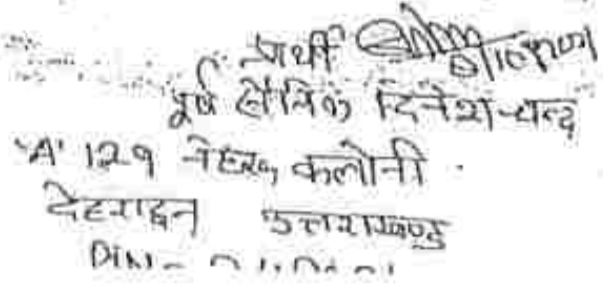 प्रार्थी
पूर्व सैनिक दिनेश चन्द्र
'A' 129 नेहरू कलोनी
देहरादून उत्तराखण्ड
PIN -